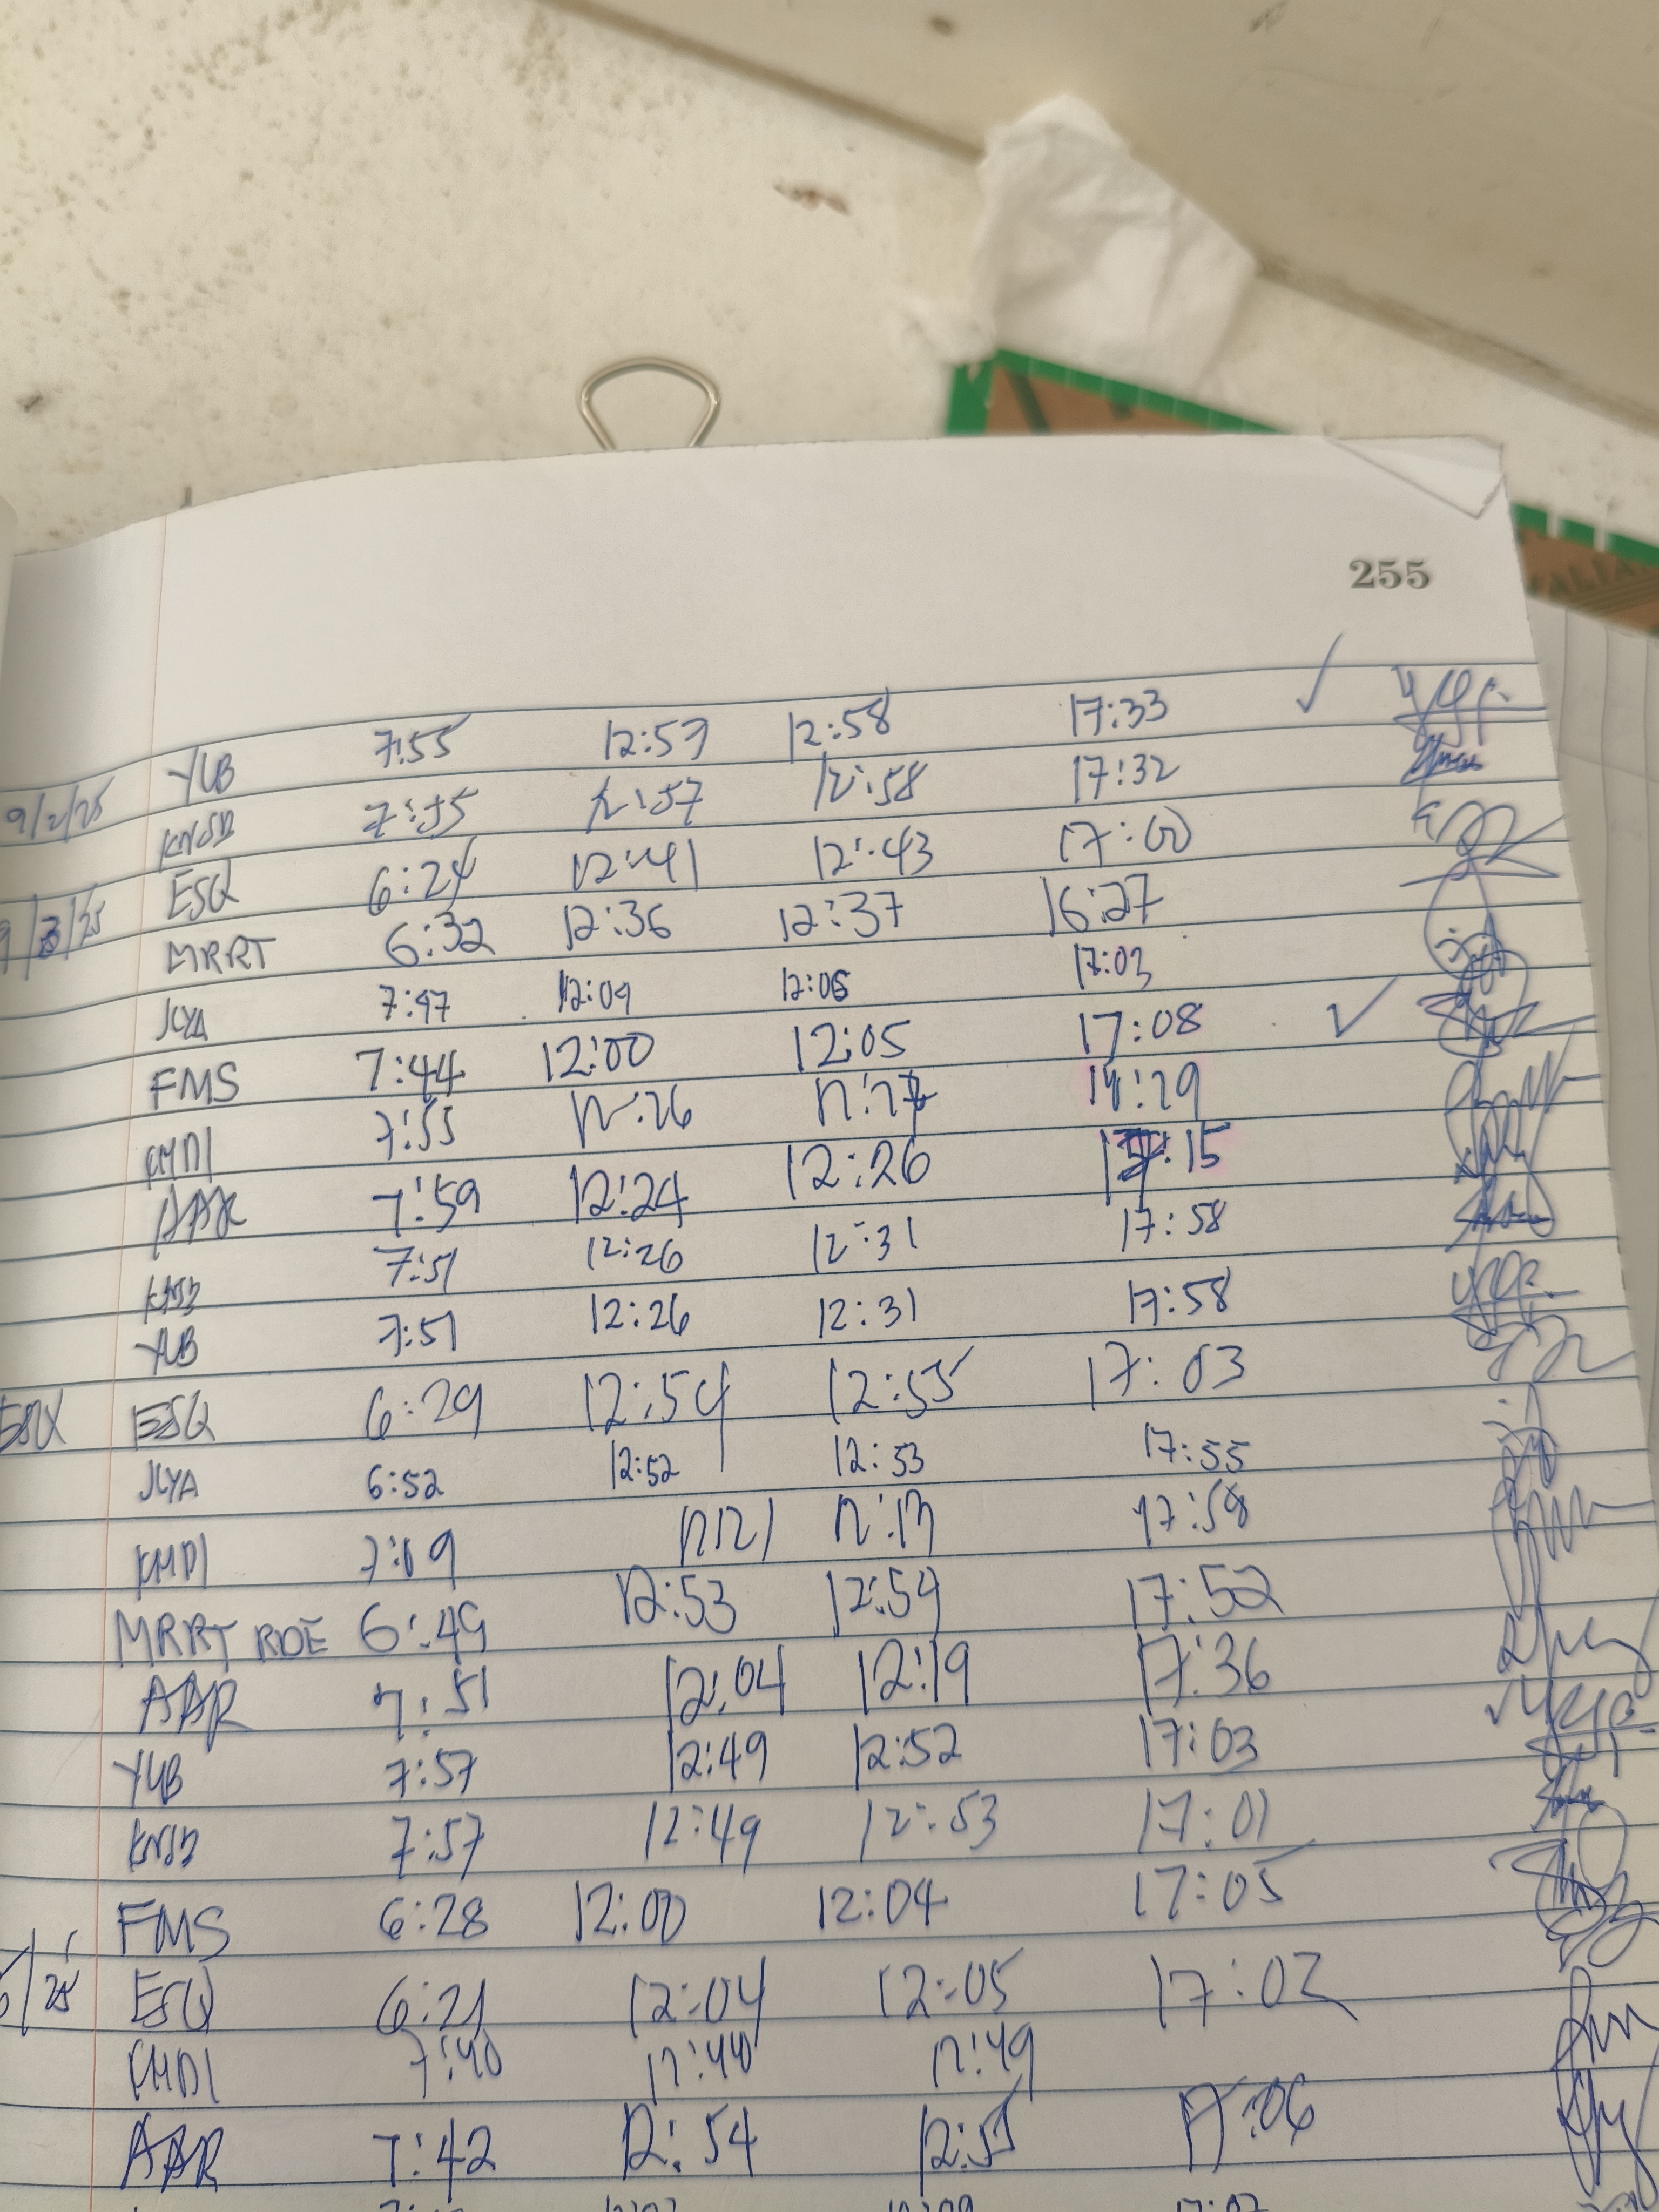 255
9/2/25 YUB 7:55 12:57 12:58 17:33 ✓
7:55 12:57 12:58 17:32
9/3/25 ESQ 6:24 12:41 12:43 17:00
MRRT 6:32 12:36 12:37 16:27
JLYA 7:47 12:04 12:05 17:03
FMS 7:44 12:00 12:05 17:08 ✓
KMDI 7:55 12:26 12:27
AAR 7:59 12:24 12:26 :15
7:51 12:26 12:31 17:58
YUB 7:51 12:26 12:31 17:58
ESQ 6:29 12:54 12:55 17:03
JLYA 6:52 12:52 12:53 17:55
KMDI 7:09 17:58
MRRT RDE 6:49 12:53 12:54 17:52
AAR 7:51 12:04 12:19 17:36
YUB 7:57 12:49 12:52 17:03
7:57 12:49 12:53 17:01
FMS 6:28 12:00 12:04 17:05
ESQ 6:21 12:04 12:05 17:02
KMDI 7:40 12:49
AAR 7:42 12:54 12:55 17:06